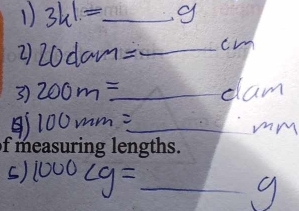 1) 3kl.=____g
2) 20dam=____cm
3) 200m=____dam
4) 100mm=____mm
of measuring lengths.
5) 1000 cg=____g